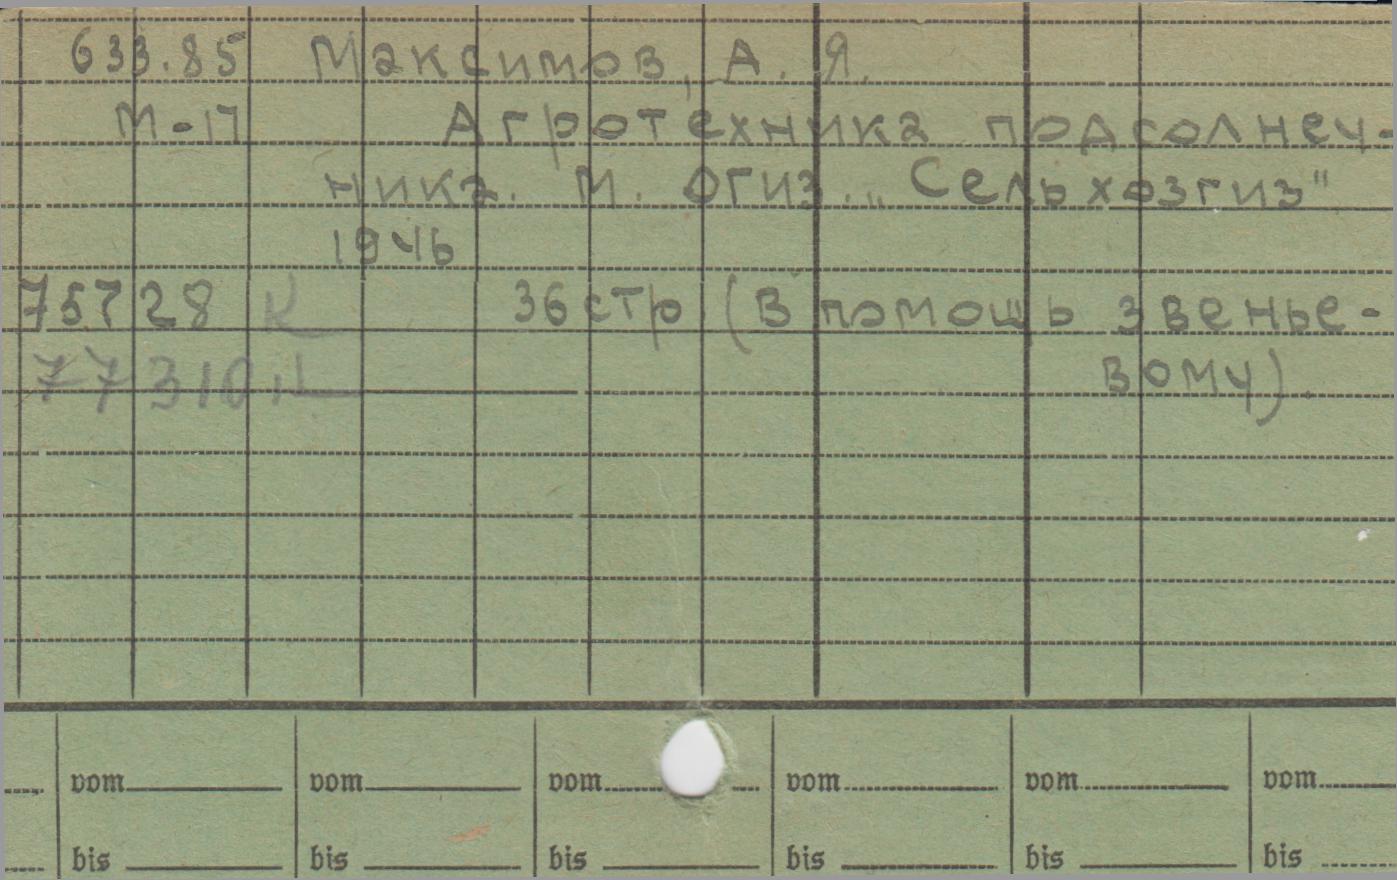 633.85 Максимов, А. Я.
М-17 Агротехника подсолнеч-
ника. М. Огиз. „Сельхозгиз"
1946
75728 К 36 стр (В помощь звенье-
77310 вому).
vom vom vom vom vom vom
bis bis bis bis bis bis